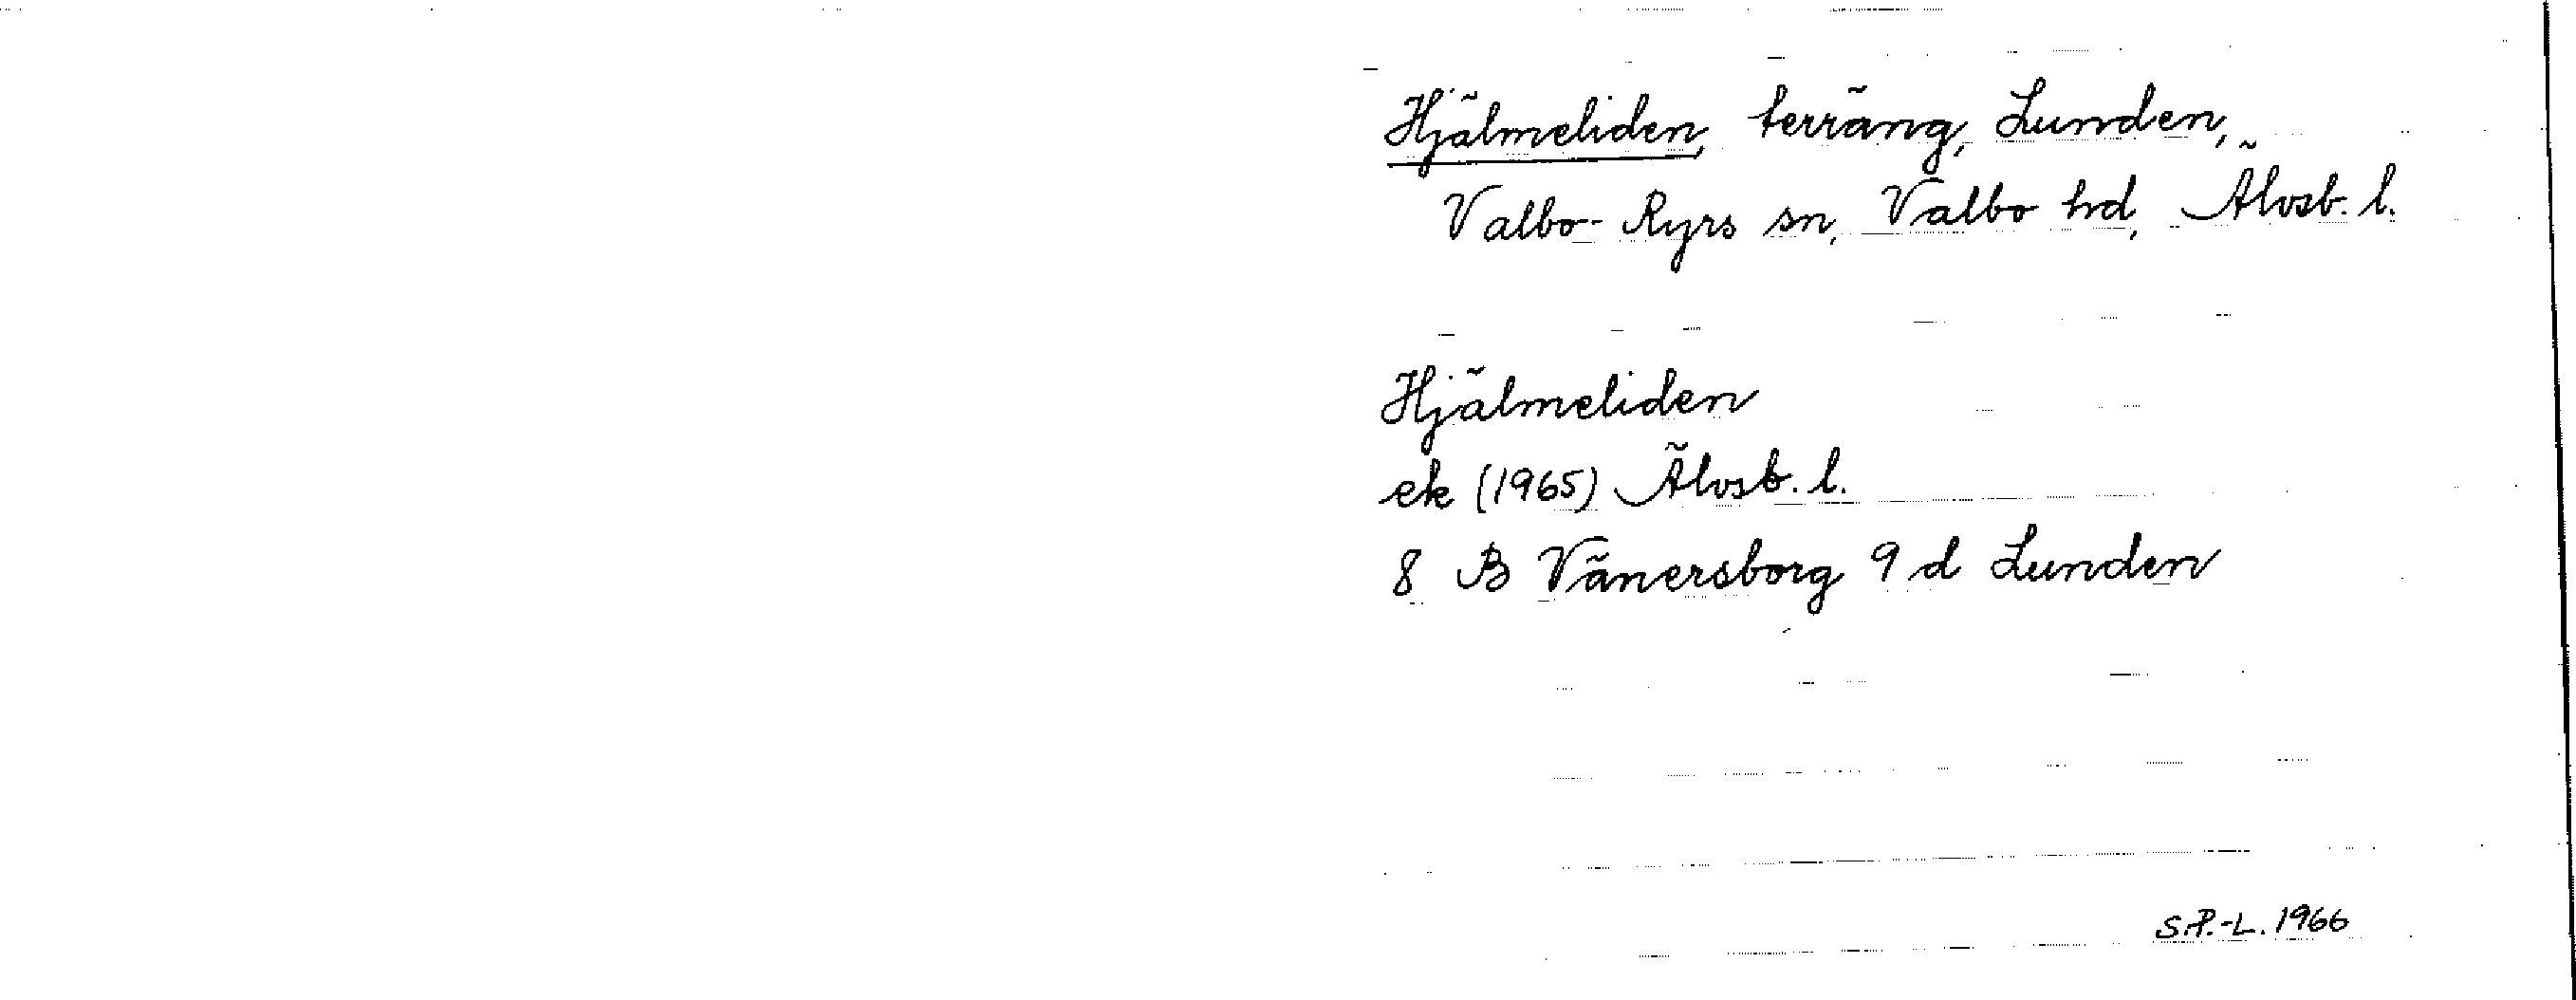 Hjälmeliden, terräng, Lunden,
Valbo-Ryrs sn, Valbo hd, Älvsb. l.
Hjälmeliden
ek (1965) Älvsb. l.
8 B Vänersborg 9 d Lunden
S.P.-L. 1966